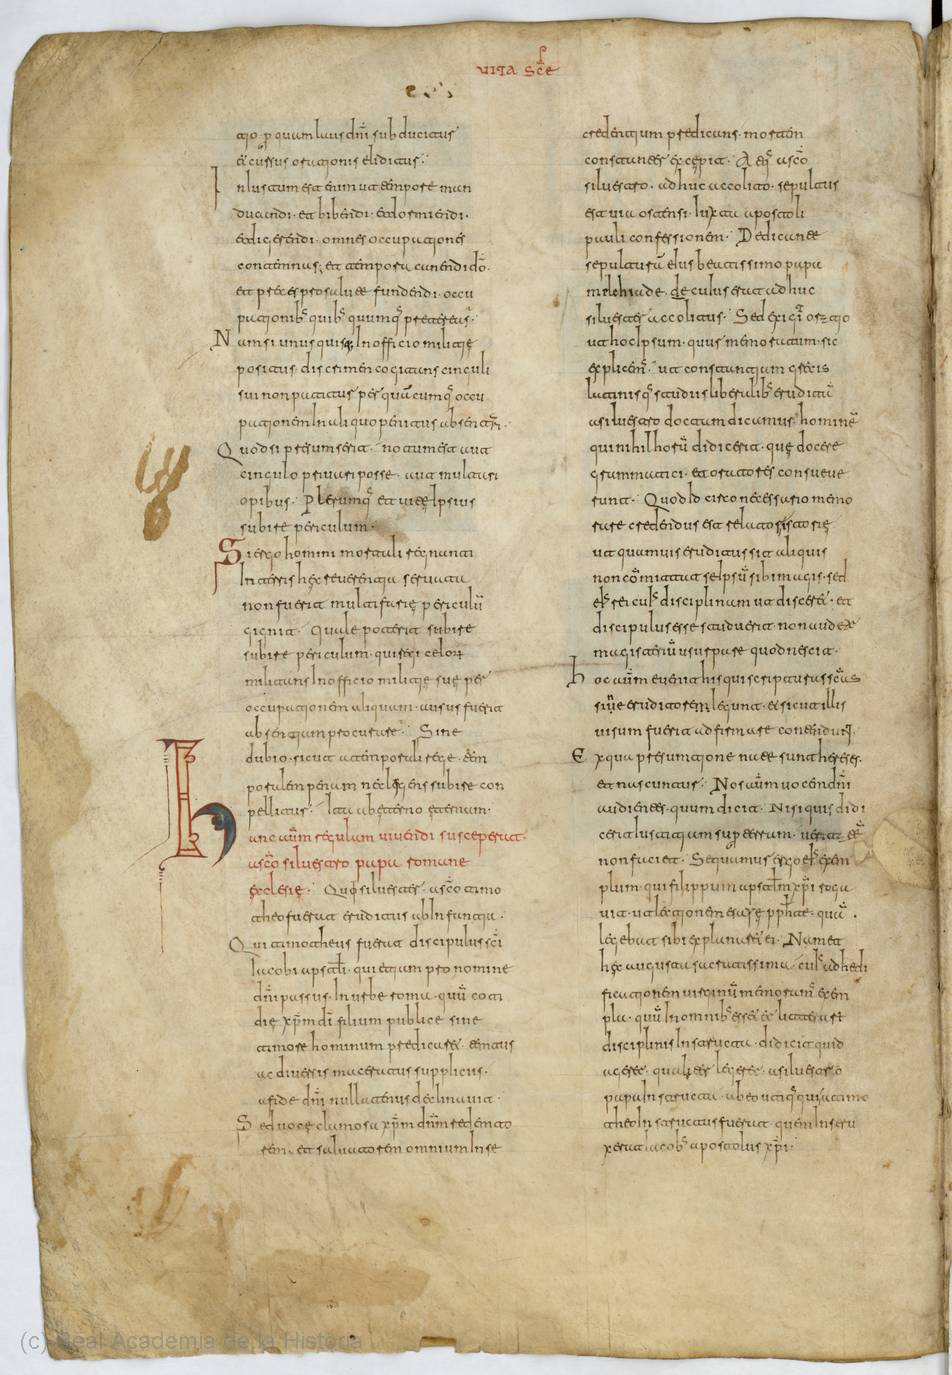 vita sc̄e
tio p quam laus dn̄i subducitus
excussus orationis eliditus:
Inlustum est enim ut tempore man
ducandi· et bibendi· et dormiendi·
et dicerendi· omnes occupationes
contemnas; et tempora canendi dō·
et preces pro salute fundendi· occu
pationib; quib; quumq; pretereas:
Nam si unus quisq; In officio militię
positus discrimen cogitans cinguli
sui non patitus per quācumq; occu
pationem In aliquo penitus absentari·
Quod si presumserit· notum est aut
cinculo privari posse· aut multari
opibus· Plerumq; et vitę Ipsius
subire periculum·
Si ergo homini mortali regnanti
In terris hęc reverentia servata
non fuerit multifarię periculū
gignit· Quale poterit subire
subire periculum· qui regi celorum
militans In officio militię suę per
occupationem aliquam· ausus fuerit
absentiam procurare· Sine
dubio· sicut a temporali rege· tem
poralem penam neclegens subire con
pellitus: Ita ab eterno eternam·
Hanc autem regulam vivendi susceperat·
a sc̄o silvestro papa romane
ęclesię· Quod silvester a sc̄o timo
theo fuerat eruditus ab Infantia·
Qui timotheus fuerat discipulus sc̄i
Iacobi apostoli· qui etiam pro nomine
dn̄i passus· In urbe roma· quū coti
die xp̄m dī filium publice sine
timore hominum predicaret· tentus
ac diversis maceratus suppliciis·
a fide dn̄i nullatenus declinavit·
Sed voce clamosa xp̄m dn̄m redemto
rem· et salvatorem omnium In se
credentium predicans· mortem
constanter excepit· Atq; a sc̄o
silvestro· adhuc accolito· sepultus
est via ostensi· Iuxta apostoli
pauli confessionem· Dedicante
sepulturā eius beatissimo papa
melchiade· de cuius erat adhuc
silvester accolitus· Sed exigit oratio
ut hoc Ipsum· quus memoratum· sic
explicem· ut constantiam grecis
latinisq; studiis liberalib; eruditā
a silvestro doctam dicamus· hominē
qui nihil horū didicerit· quę docere
grammatici· et oratores consueve
runt· Quod Idcirco necessario memo
rare credendus est relator istorię
ut quamvis eruditus sit aliquis
non cōmittat se Ipsū sibi magis· sed
eius rei cuius disciplinam ut disceret· et
discipulus esse studuerit non audeat
magisteriū usurpare quod nescit·
hoc autem evenit his qui scripturas sc̄as
sine eruditorem legunt· et sicut illis
visum fuerit adfirmare contendunt·
Ex qua presumtione nate sunt hereses·
et nascuntur· Nos autem vocem dn̄i
audientes· quum dicit· Nisi quis didi
cerit Iustitiam super terram· veritatem
non faciet· Sequamur ergo eius exem
plum· qui filippum apostolum xp̄i roga
vit· ut lectionem esaye pphete· quam·
legebat sibi explanaret ei· Nam et
hęc augusta sacratissima· cuius ad hedi
ficationem virginum memoramus exem
pla· quū In omnib; esset ex litterarū
disciplinis Instructa· didicit quid
ageret· qualiter legeret· a silvestro
papa Instructa· ab eo utiq; qui a timo
theo Instructus fuerat· quem Instru
xerat iacobus apostolus xp̄i·